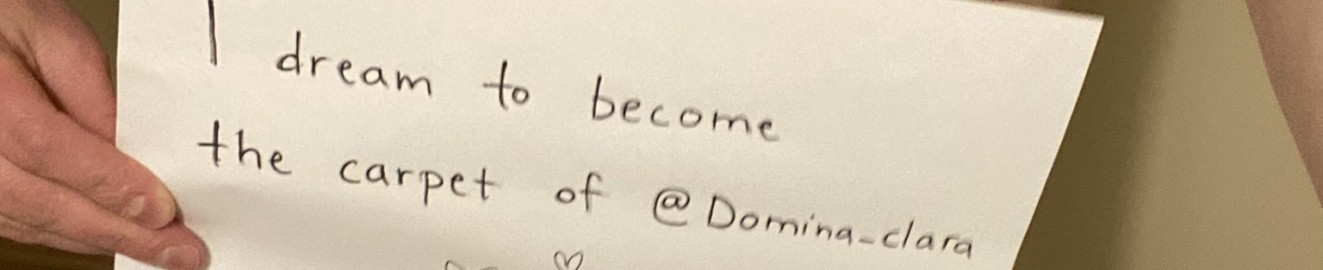 I dream to become
the carpet of @Domina_clara
♡